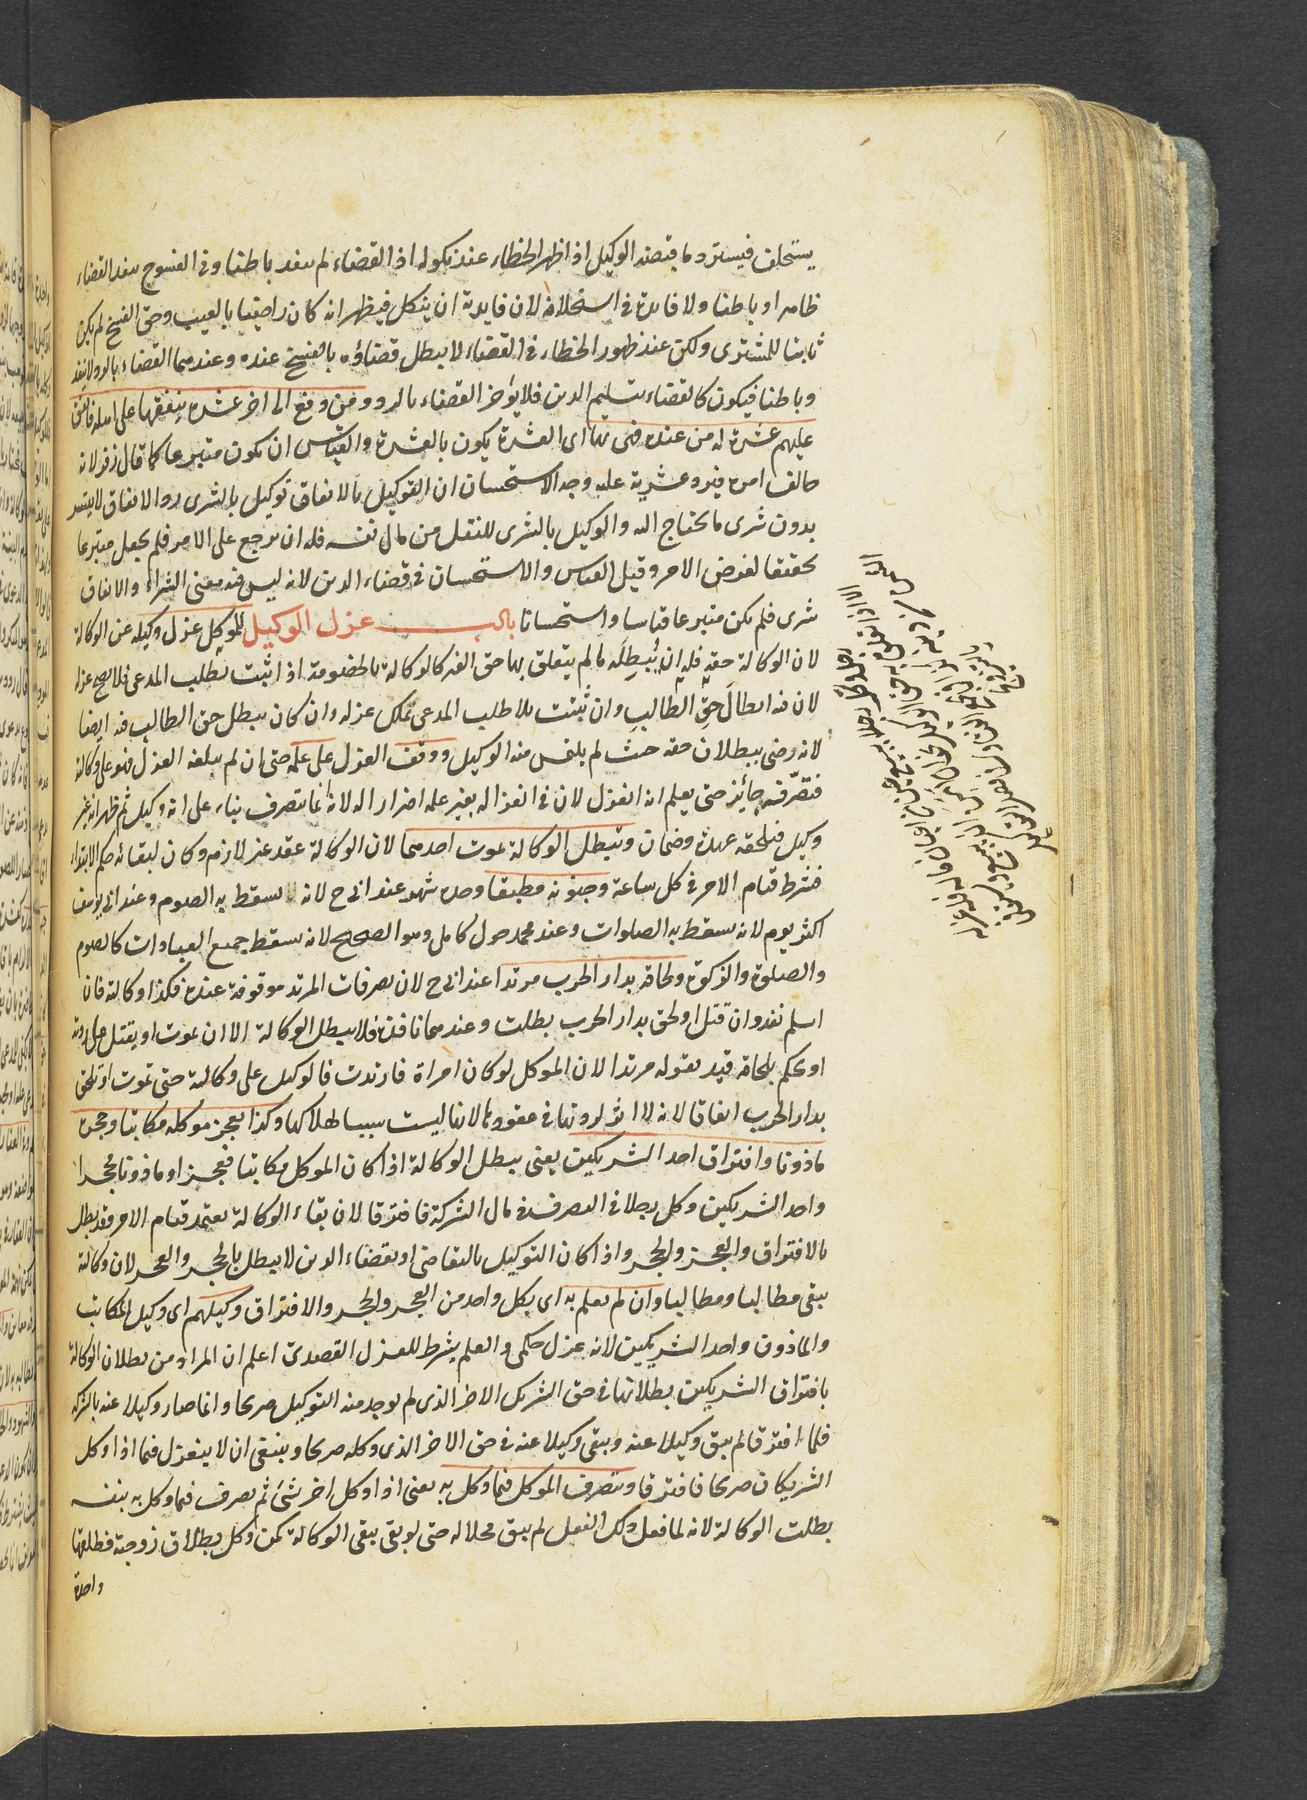 يستحلف فيسترد ما قبضه الوكيل اذا ظهر الخطاء عند نكوله اذ القضاء لم ينفذ باطنا وفى الفسوخ ينفذ القضاء
ظاهرا وباطنا ولا فائدة فى استحلافه لان فايدته ان ينكل فيظهر انه كان راضيا بالعيب وحق الفسخ لم يكن
ثابتا للمشترى ولكن عند ظهور الخطاء فى القضاء لا يبطل قضاؤه بالفسخ عنده وعندهما القضاء بالرد لا ينفذ
وباطنا فيكون كالقضاء بتسليم الدين فلا يؤخر القضاء بالرد ومن دفع الى اخر عشرة ينفقها على اهله فانفق
عليهم عشرة له من عنده فهى بها اى العشرة يكون بالعشرة والقياس ان يكون متبرعا كما قال زفر لانه
خالف امره فيرد عشرته عليه وجه الاستحسان ان التوكيل بالانفاق توكيل بالشرى اذ الانفاق لا يتيسر
بدون شرى ما يحتاج اليه والوكيل بالشرى للنقل من مال نفسه فله ان يرجع على الامر فلم يجعل متبرعا
تحقيقا لغرض الامر وقيل القياس والاستحسان فى قضاء الدين لانه ليس فيه معنى الشراء والانفاق
شرى فلم يكن متبرعا قياسا واستحسانا باب عزل الوكيل للموكل عزل وكيله عن الوكالة
لان الوكالة حقه فله ان يبطله ما لم يتعلق بها حق الغير كالوكالة بالخصومة اذا ثبت بطلب المدعى فلا يصح عزله
لان فيه ابطال حق الطالب وان ثبتت بلا طلب المدعى يملك عزله وان كان يبطل حق الطالب فيه ايضا
لانه رضى ببطلان حقه حيث لم يلتمس منه الوكيل ووقف العزل على علمه حتى ان لم يبلغه العزل فهو على وكالته
فتصرفه جائز حتى يعلم انه انعزل لان فى انعزاله بغير علمه اضرارا له لانه انما يتصرف بناء على انه وكيل ثم ظهر انه غير
وكيل فتلحقه عهدة وضمان وتبطل الوكالة بموت احدهما لان الوكالة عقد غير لازم وكان لبقائه حكم الابتداء
فشرط قيام الامر فى كل ساعة وجنونه مطبقا وحده شهر عند ابى ح لانه يسقط به الصوم وعند ابى يوسف
اكثر يوم لانه يسقط به الصلوات وعند محمد حول كامل وهو الصحيح لانه يسقط جميع العبادات كالصوم
والصلوة والزكوة ولحاقه بدار الحرب مرتدا عند ابى ح لان تصرفات المرتد موقوفة عنده فكذا وكالته فان
اسلم نفذ وان قتل او لحق بدار الحرب بطلت وعندهما نافذة فلا يبطل الوكالة الا ان يموت او يقتل على ردته
او يحكم بلحاقه قيد بقوله مرتدا لان الموكل لو كان امراة فارتدت فالوكيل على وكالته حتى تموت او تلحق
بدار الحرب اتفاقا لانه لا اثر لردتها فى عقودها لانها ليست سببا لهلاكها وكذا بعجز موكله مكاتبا وحجره
ماذونا وافتراق احد الشريكين يعنى يبطل الوكالة اذا كان الموكل مكاتبا فعجز او ماذونا فحجر او
واحد الشريكين وكل رجلا فى التصرف فى مال الشركة فافترقا لان بقاء الوكالة يعتمد قيام الامر وقد بطل
بالافتراق والعجز والحجر واذا كان التوكيل بالتقاضى او بقضاء الدين لا يبطل بالحجر والعجز لان وكالة
يبقى مطالبا ومطالبا وان لم يعلم به اى بكل واحد من العجز والحجر والافتراق وكيلهم اى وكيل المكاتب
والماذون واحد الشريكين لانه عزل حكمى والعلم يشرط للعزل القصدى اعلم ان المراد من بطلان الوكالة
بافتراق الشريكين بطلانها فى حق الشريك الاخر الذى لم يوجد منه التوكيل صريحا وانما صار وكيلا عنه بالشركة
فلما افترقا لم يبق وكيلا عنه ويبقى وكيلا عنه فى حق الاخر الذى وكله صريحا وينبغى ان لا ينعزل فيما اذا وكل
الشريكان صريحا فافترقا وتصرف الموكل فيما وكل به يعنى اذا وكل اخر شئ ثم تصرف فيما وكل به بنفسه
بطلت الوكالة لانه لما فعل ذلك الفعل لم يبق محلا له حتى لو بقى يبقى الوكالة كمن وكل بطلاق زوجته فطلقها
واحدة